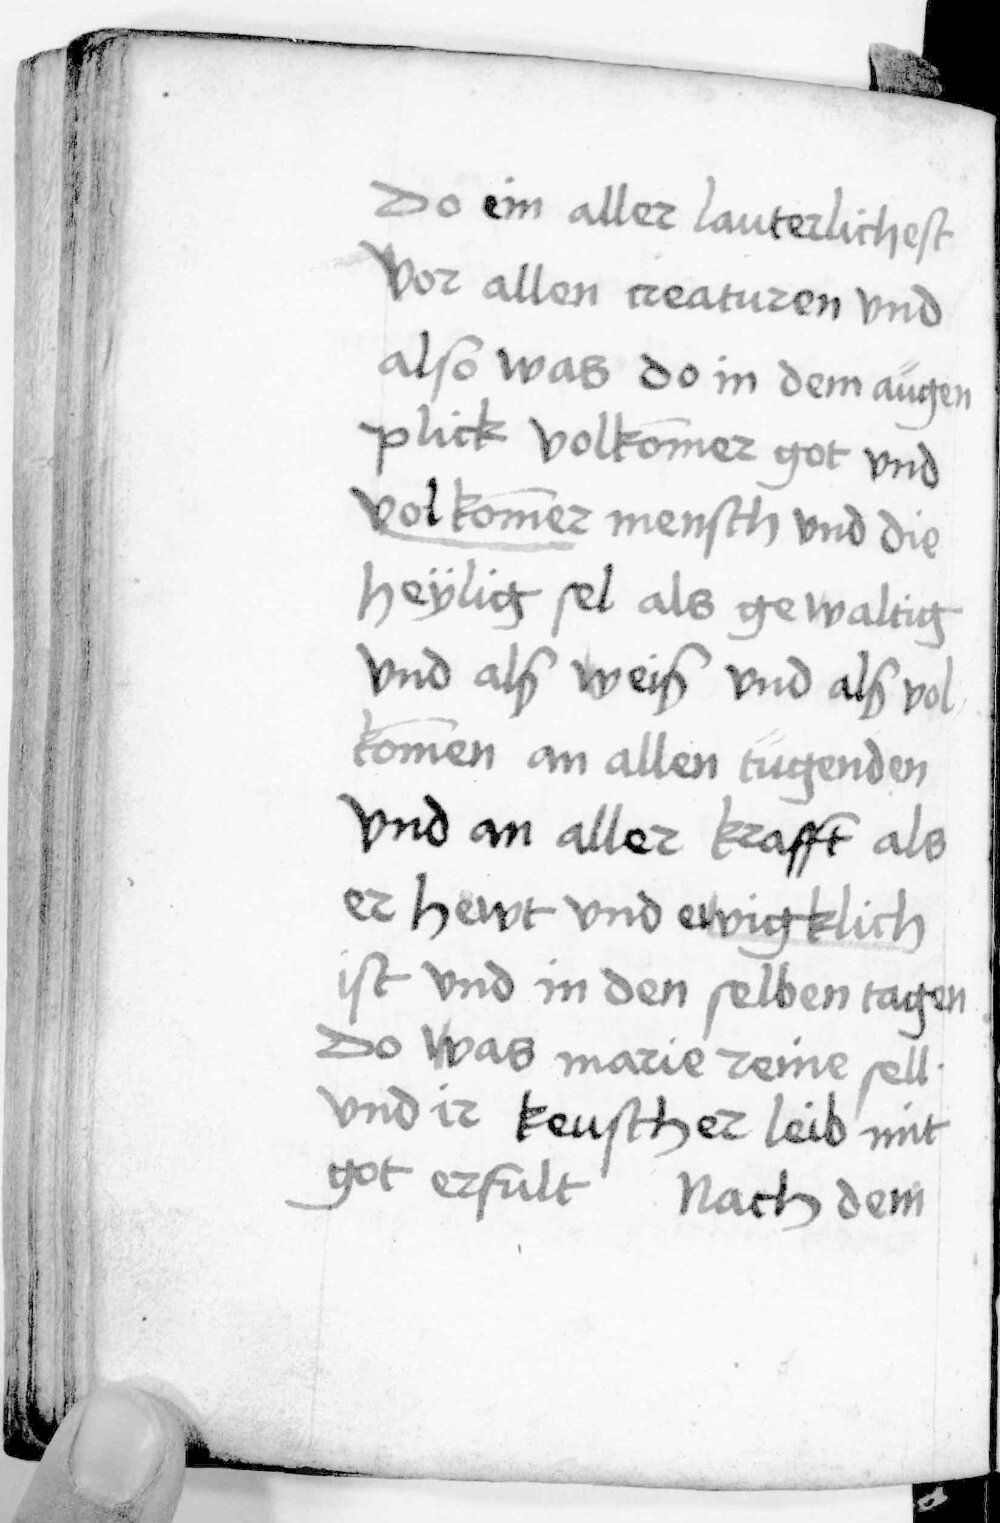 Do ein aller lauterlichest
vor allen creaturen vnd
also was do in dem augen
plick volkom̄er got vnd
volkom̄er mensch vnd die
heÿlig sel als gewaltig
vnd alß weiß vnd alß vol
kom̄en an allen tugenden
vnd an aller krafft als
er hewt vnd ewigklich
ist vnd in den selben tagen
Do was marie reine sell
vnd ir keuscher leib mit
got erfult Nach dem